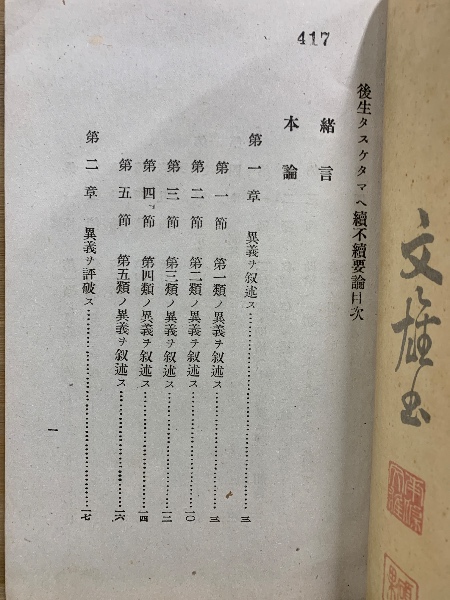 417
後生タスケタマヘ續不續要論目次
緒言
本論
第一章 異義ヲ叙述ス……三
第一節 第一類ノ異義ヲ叙述ス……三
第二節 第二類ノ異義ヲ叙述ス……一〇
第三節 第三類ノ異義ヲ叙述ス……一二
第四節 第四類ノ異義ヲ叙述ス……一四
第五節 第五類ノ異義ヲ叙述ス……一六
第二章 異義ヲ評破ス……一七
一
文雄